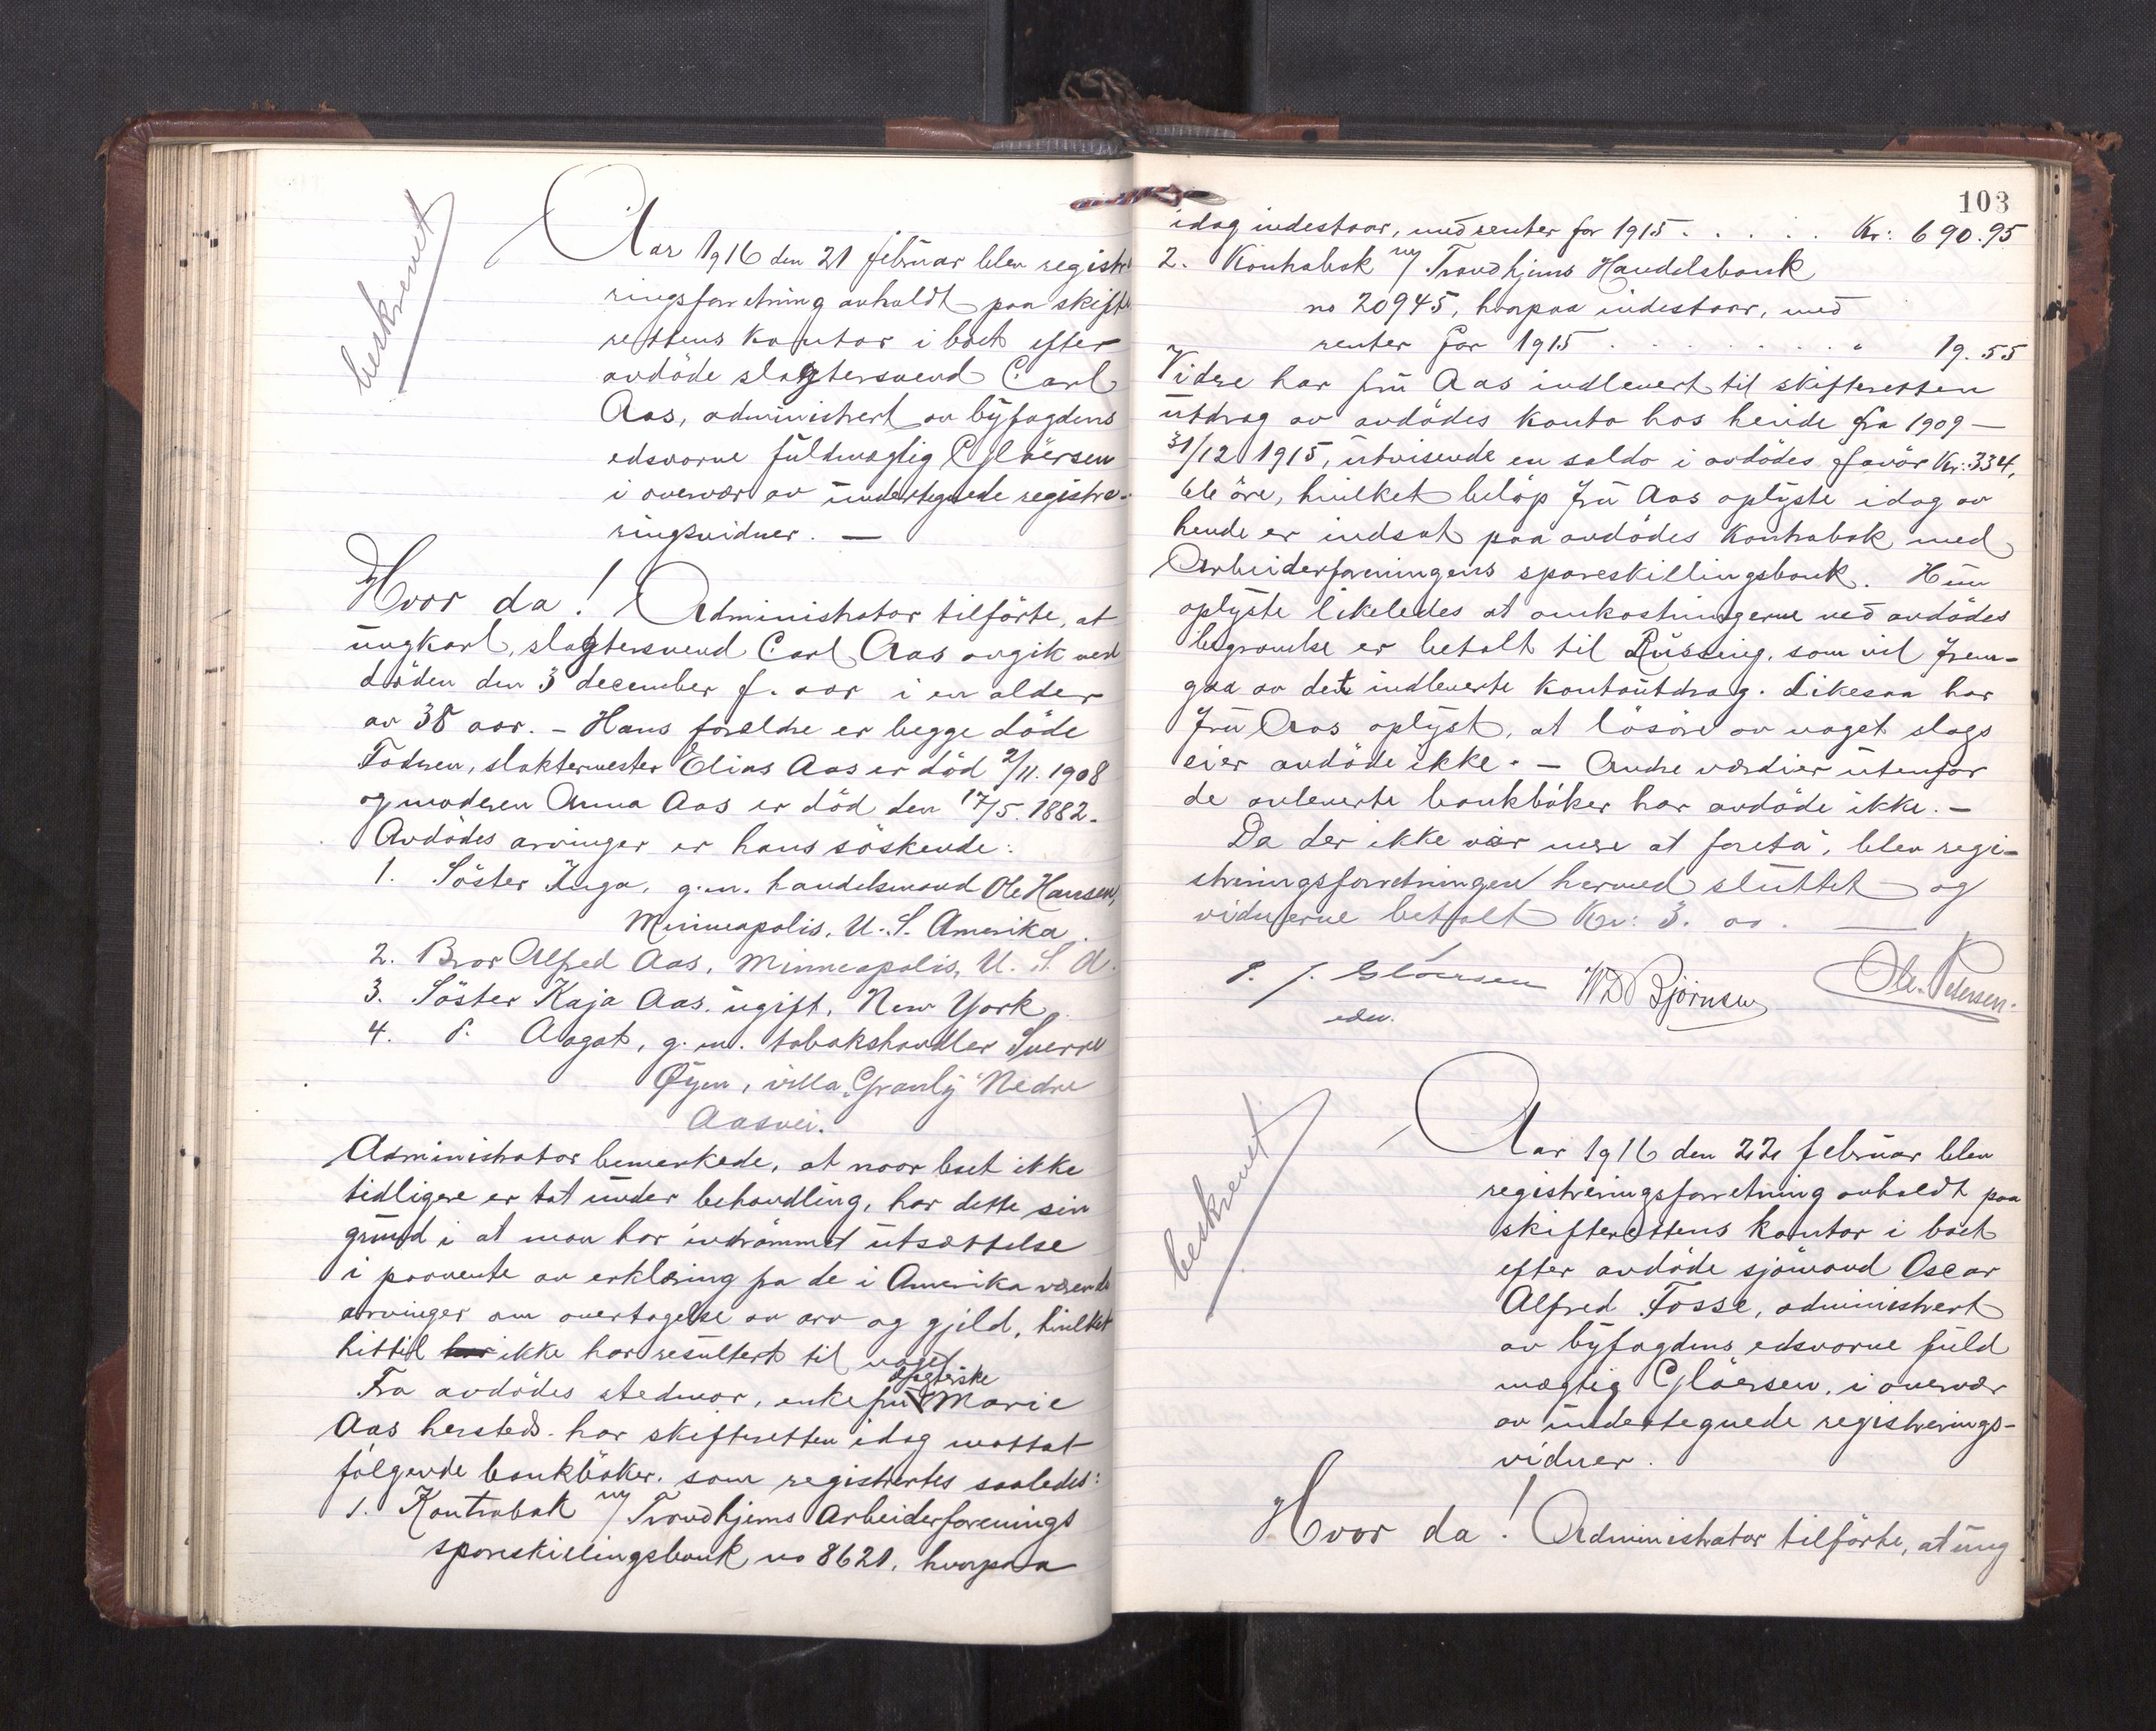 beskrevet
Aar 1916 den 21 februar blev registre
ringsforretning avholdt paa skifte
rettens kontor i boet efter
avdöde slagtersvend Carl
Aas, administrert av byfogdens
edsvorne fuldmægtig Glöersen
i overvær av undertegnede registre-
ringsvidner. —
Hvor da! Administrator tilförte, at
ungkarl, slagtersvend Carl Aas avgik ved
döden den 3 december f. aar i en alder
av 38 aar. - Hans forældre er begge döde
Faderen, slaktermester Elias Aas er död 2/11. 1908
og moderen Anna Aas er död den 17/5. 1882.
Avdödes arvinger er hans söskende:
1. Söster Inga, g.m. handelsmand Ole Hansen,
Minneapolis, U. S. Amerika.
2. Bror Alfred Aas, Minneapolis, U. S. A.
3. Söster Kaja Aas, ugift, New York
4. S. Aagot, g. m. tobakshandler Sverre
Øyen, villa "Granly" Nedre
Aasvei.
Administrator bemerkede, at naar boet ikke
tidligere er tat under behandling, har dette sin
grund i at man har indrömmet utsættelse
i paavente av erklæring fra de i Amerika værende
arvinger om overtagelse av arv og gjeld, hvilket
hittil har ikke har resultert til noget.
Fra avdödes stedmor, enkefru Marie
Aas hersteds. har skifteretten idag mottat
fölgende bankböker, som registrertes saaledes:
1. Kontrabok m/ Trondhjems Arbeiderforenings
spareskillingsbank no 8621, hvorpaa
103
idag indestaar, med renter for 1915 . . . . . Kr: 690.95
2. Kontrabok m/ Trondhjems Handelsbank
no 20945, hvorpaa indestaar, med
renter for 1915 . . . . . . . . " 19.55
Videre har fru Aas indlevert til skifteretten
utdrag av avdödes konto hos hende fra 1909 —
31/12 1915, utvisende en saldo i avdödes favör Kr: 334,
öre, hvilket belöp fru Aas oplyste idag av
hende er indsat paa avdödes kontrabok med
Arbeiderforeningens spareskillingsbank. Hun
oplyste likeledes at omkostningerne ved avdödes
begravelse er betalt til Russing, som vil frem-
gaa av dette indleverte kontoutdrag. Likesaa har
fru Aas oplyst, at lösöre av noget slags
eier avdöde ikke. — Andre værdier utenfor
de avleverte bankböker har avdöde ikke. —
Da der ikke var mere at foreta, blev regi-
streringsforretningen hermed sluttet og
vidnerne betalt Kr: 3. oo. —
P. J. Glöersen W D Björnsen Ole Petersen.
edsv.
beskrevet
Aar 1916 den 22 februar blev
registreringsforretning avholdt paa
skifterettens kontor i boet
efter avdöde sjömand Oscar
Alfred Fosse, administrert
av byfogdens edsvorne fuld
mægtig Glöersen, i overvær
av undertegnede registrerings-
vidner.
Hvor da! Administrator tilförte, at ung